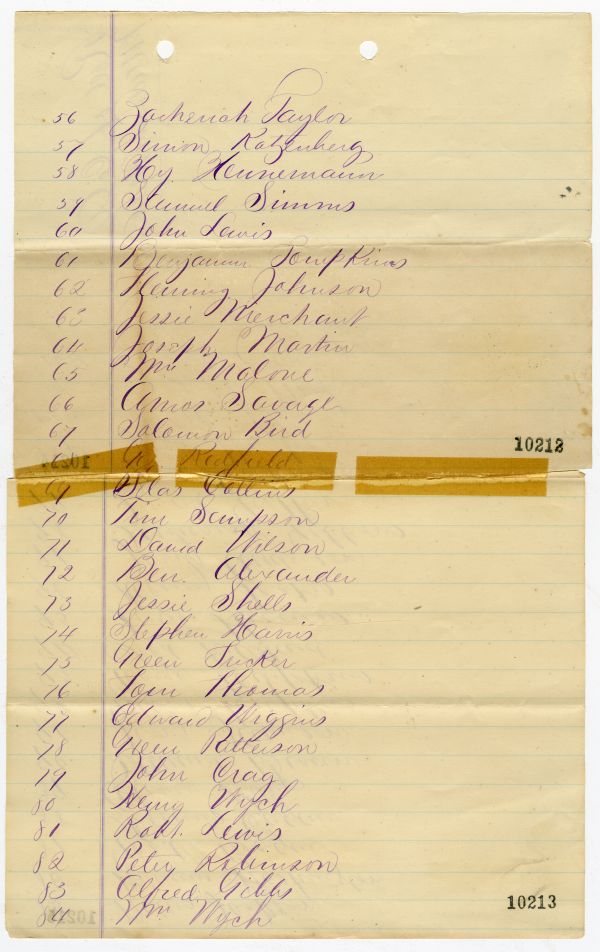 56 Zacheriah Taylor
57 Simon Katzenberg
58 Hy. Hennemann
59 Samuel Simms
60 John Lewis
61 Benjamin Tompkins
62 Fleming Johnson
63 Jessie Merchant
64 Joseph Martin
65 Wm Malone
66 Amos Savage
67 Solomon Bird
10212
Redfield
69 Silas Collins
70 Tim Sampson
71 David Wilson
72 Ben. Alexander
73 Jessie Shells
74 Stephen Harris
75 Green Tucker
76 Tom Thomas
77 Edward Wiggins
78 Green Patterson
79 John Crag
80 Henry Wych
81 Robt. Lewis
82 Peter Robinson
83 Alfred Gibbs
10213
84 Wm Wych